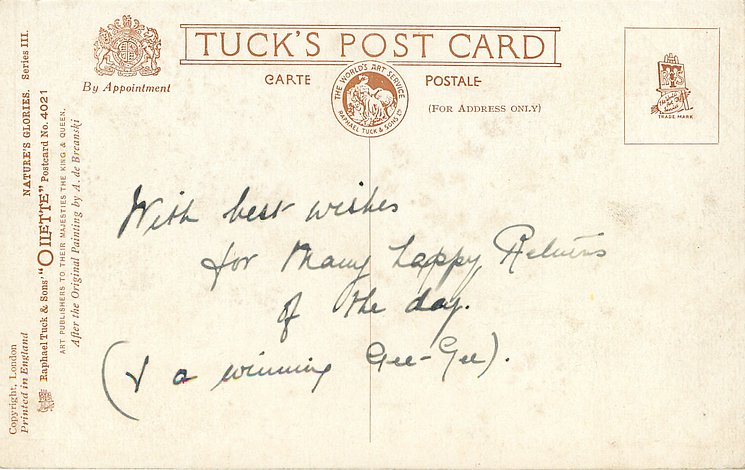 TUCK'S POST CARD
By Appointment
CARTE POSTALE
THE WORLD'S ART SERVICE
RAPHAEL TUCK & SONS LTD
(FOR ADDRESS ONLY)
TRADE MARK
With best wishes
for Many happy Returns
of the day.
(& a winning Gee-Gee).
NATURE'S GLORIES. Series III.
Raphael Tuck & Sons' "OILETTE" Postcard No. 4021
ART PUBLISHERS TO THEIR MAJESTIES THE KING & QUEEN.
After the Original Painting by A. de Breanski
Copyright, London
Printed in England